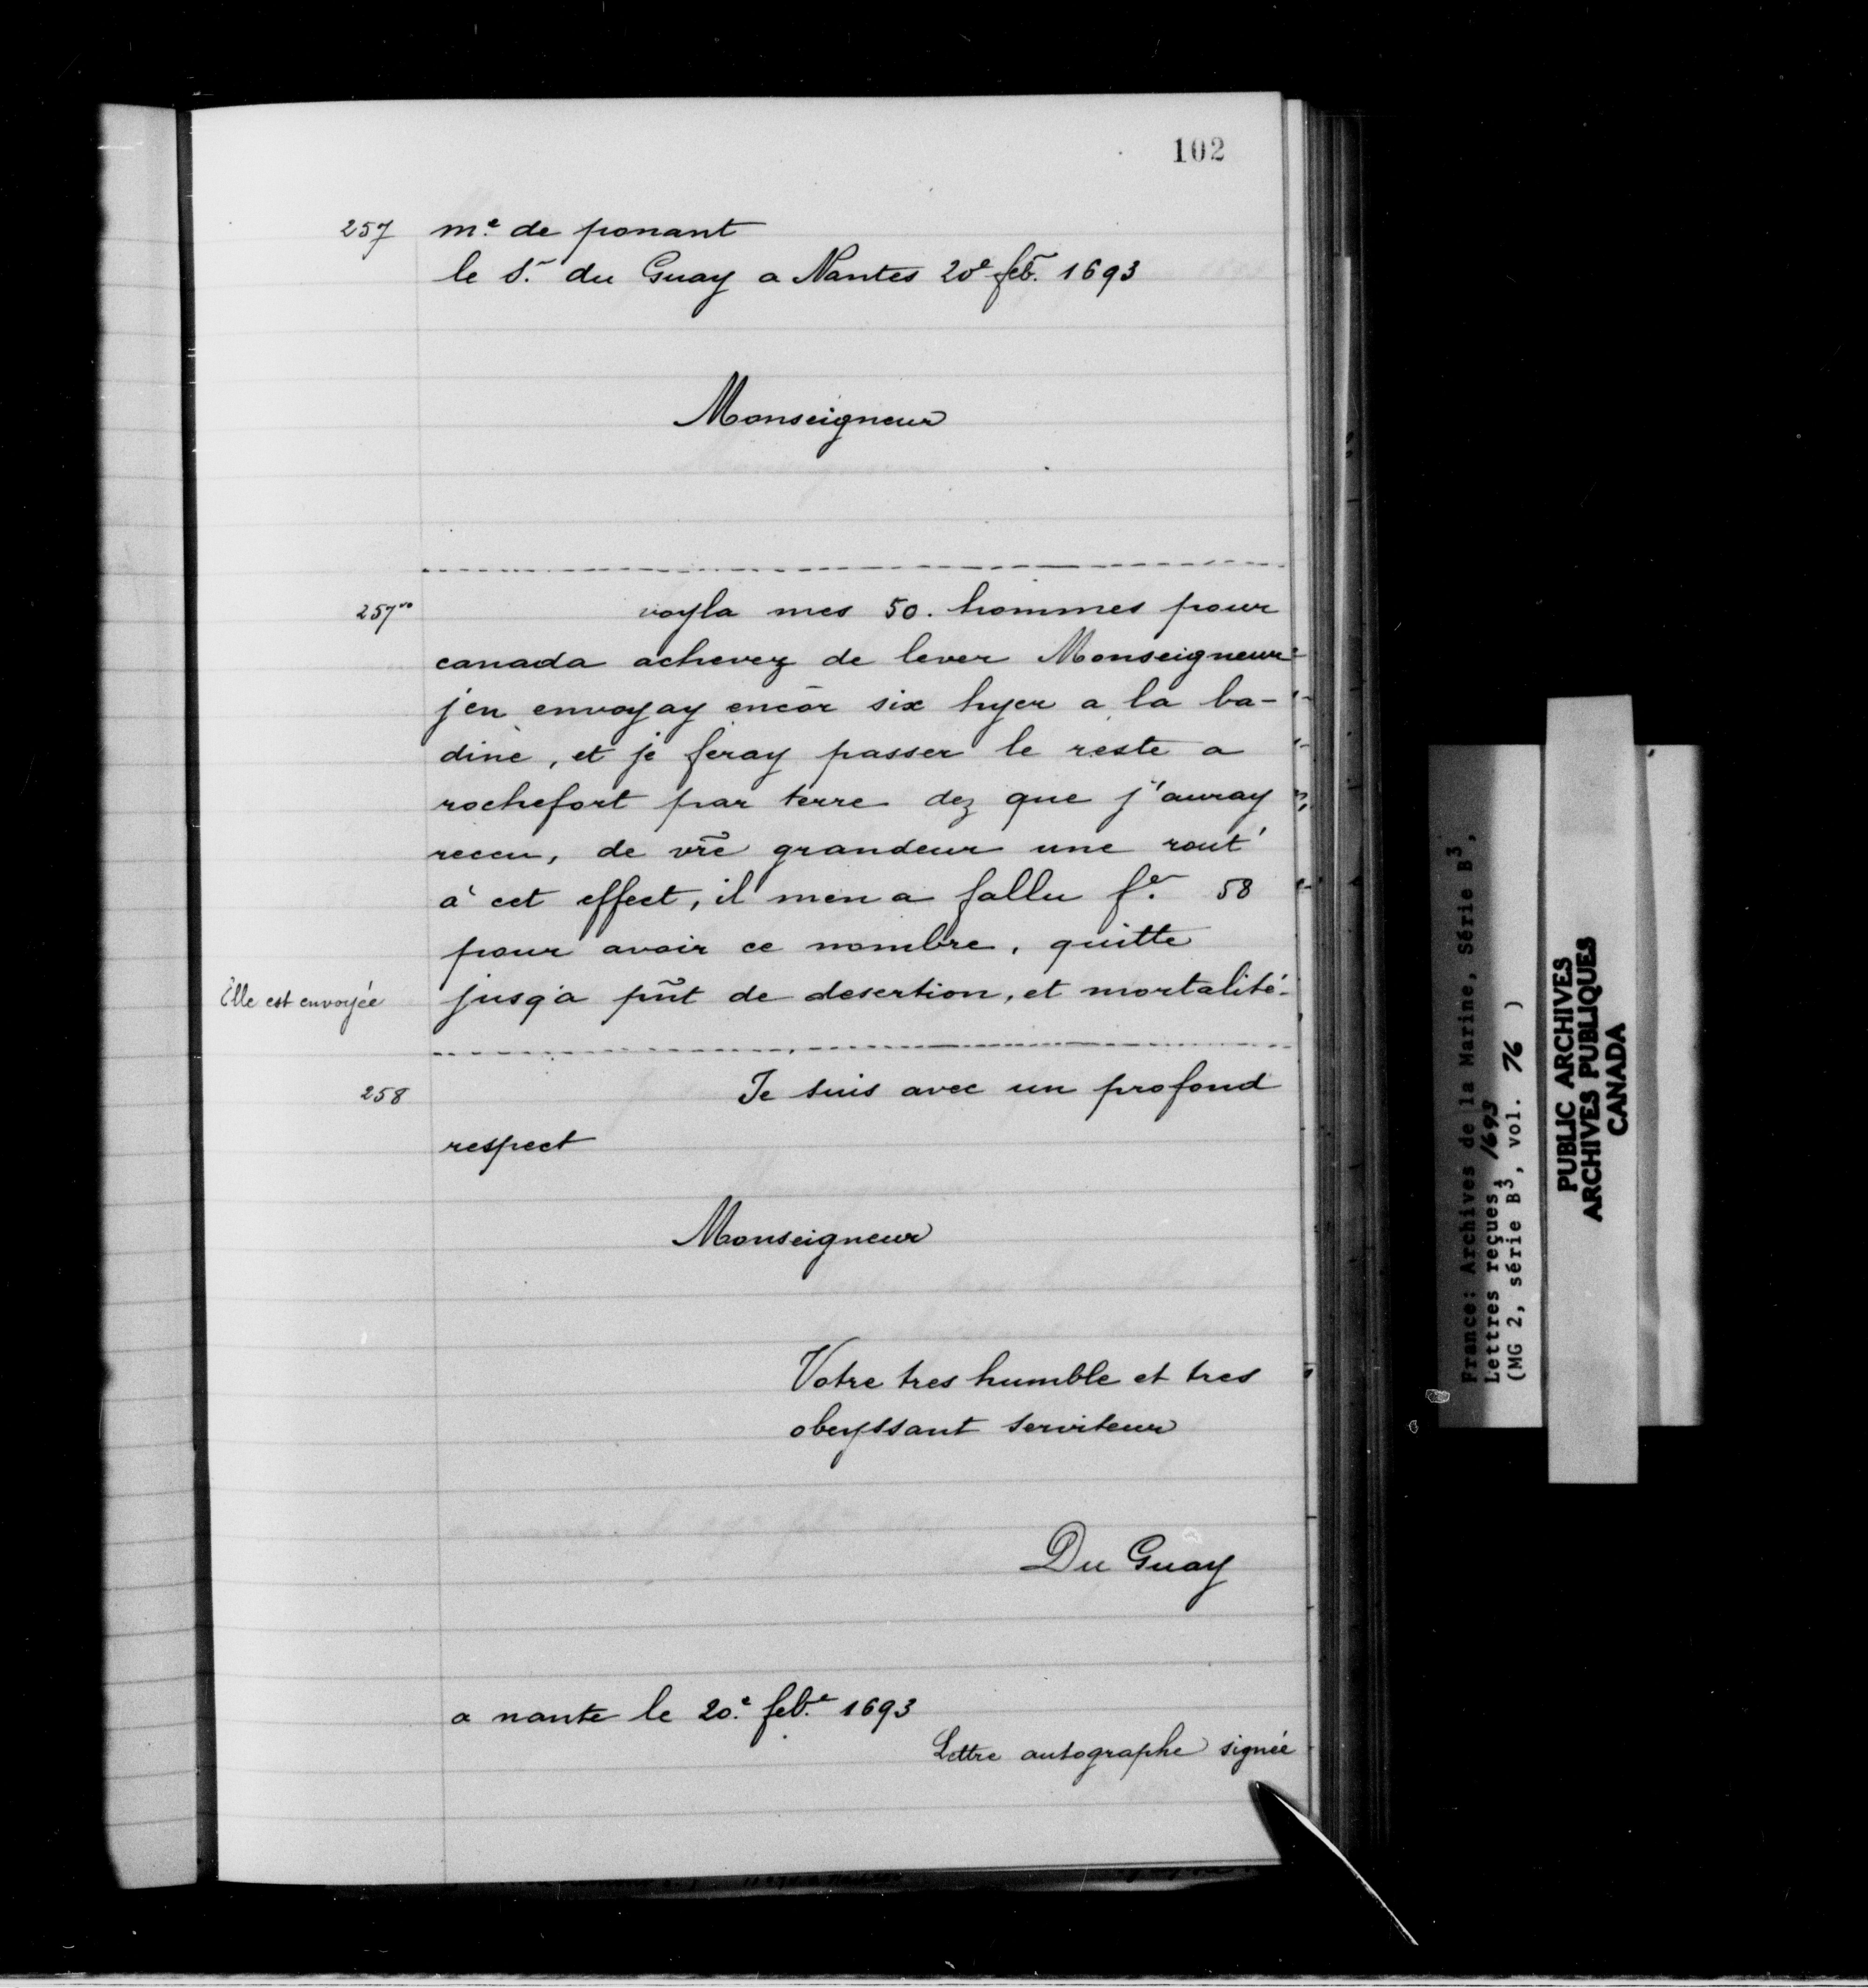 102
257 m.e de ponant
le S.r du Guay a Nantes 20e feb. 1693
Monseigneur
257vo voyla mes 50. hommes pour
canada achevez de lever Monseigneur
j'en envoyay encōr six hyer a la ba-
dine, et je feray passer le reste a
rochefort par terre dez que j'auray
receu, de vr̃e grandeur une rout'
à cet effect, il men a fallu f.e 58
pour avoir ce nombre, quitte
Elle est envoyée
jusq'a pñt de desertion, et mortalité.
258 Je suis avec un profond
respect
Monseigneur
Votre tres humble et tres
obeyssant serviteur
Du Guay
a nante le 20.e feb.e 1693
Lettre autographe signée
France: Archives de la Marine, Série B3,
Lettres reçues, 1693
(MG 2, série B3, vol. 76 )
PUBLIC ARCHIVES
ARCHIVES PUBLIQUES
CANADA